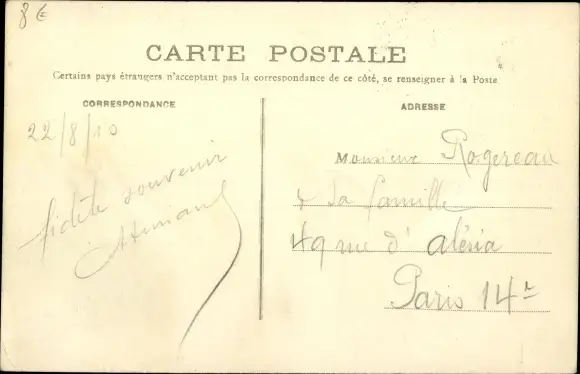 8€
CARTE POSTALE
Certains pays étrangers n'acceptant pas la correspondance de ce côté, se renseigner à la Poste
CORRESPONDANCE
22/8/10
fidèle souvenir
ADRESSE
Monsieur Rogereau
& sa famille
49 rue d'alésia
Paris 14e